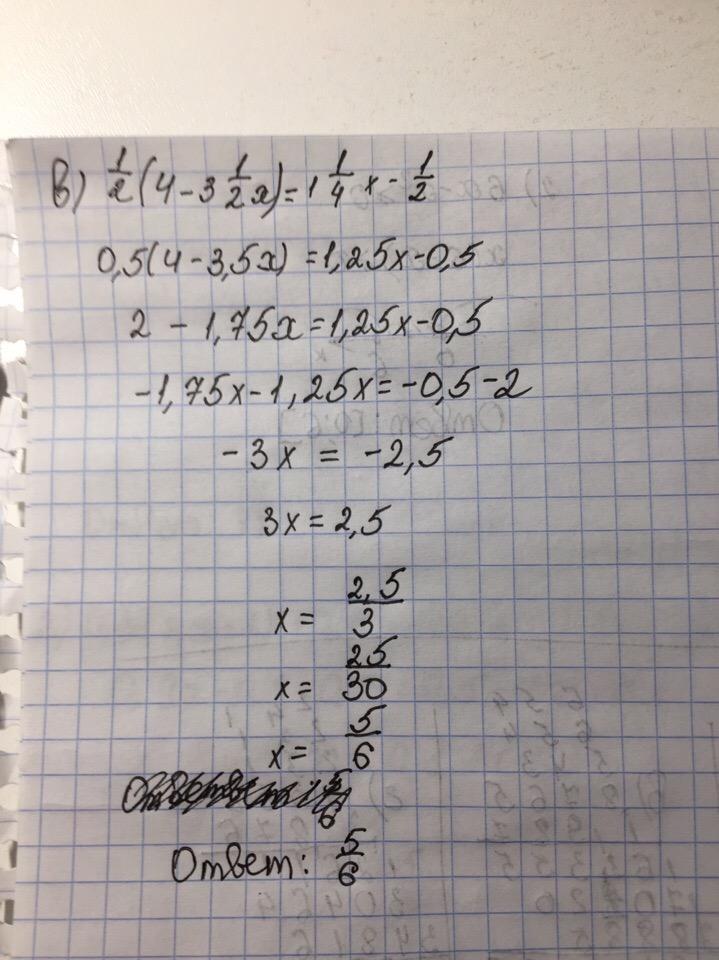 в) 1/2 (4 - 3 1/2 x) = 1 1/4 x - 1/2
0,5(4 - 3,5x) = 1,25x - 0,5
2 - 1,75x = 1,25x - 0,5
-1,75x - 1,25x = -0,5 - 2
-3x = -2,5
3x = 2,5
x = 2,5/3
x = 25/30
x = 5/6
Ответ: 5/6